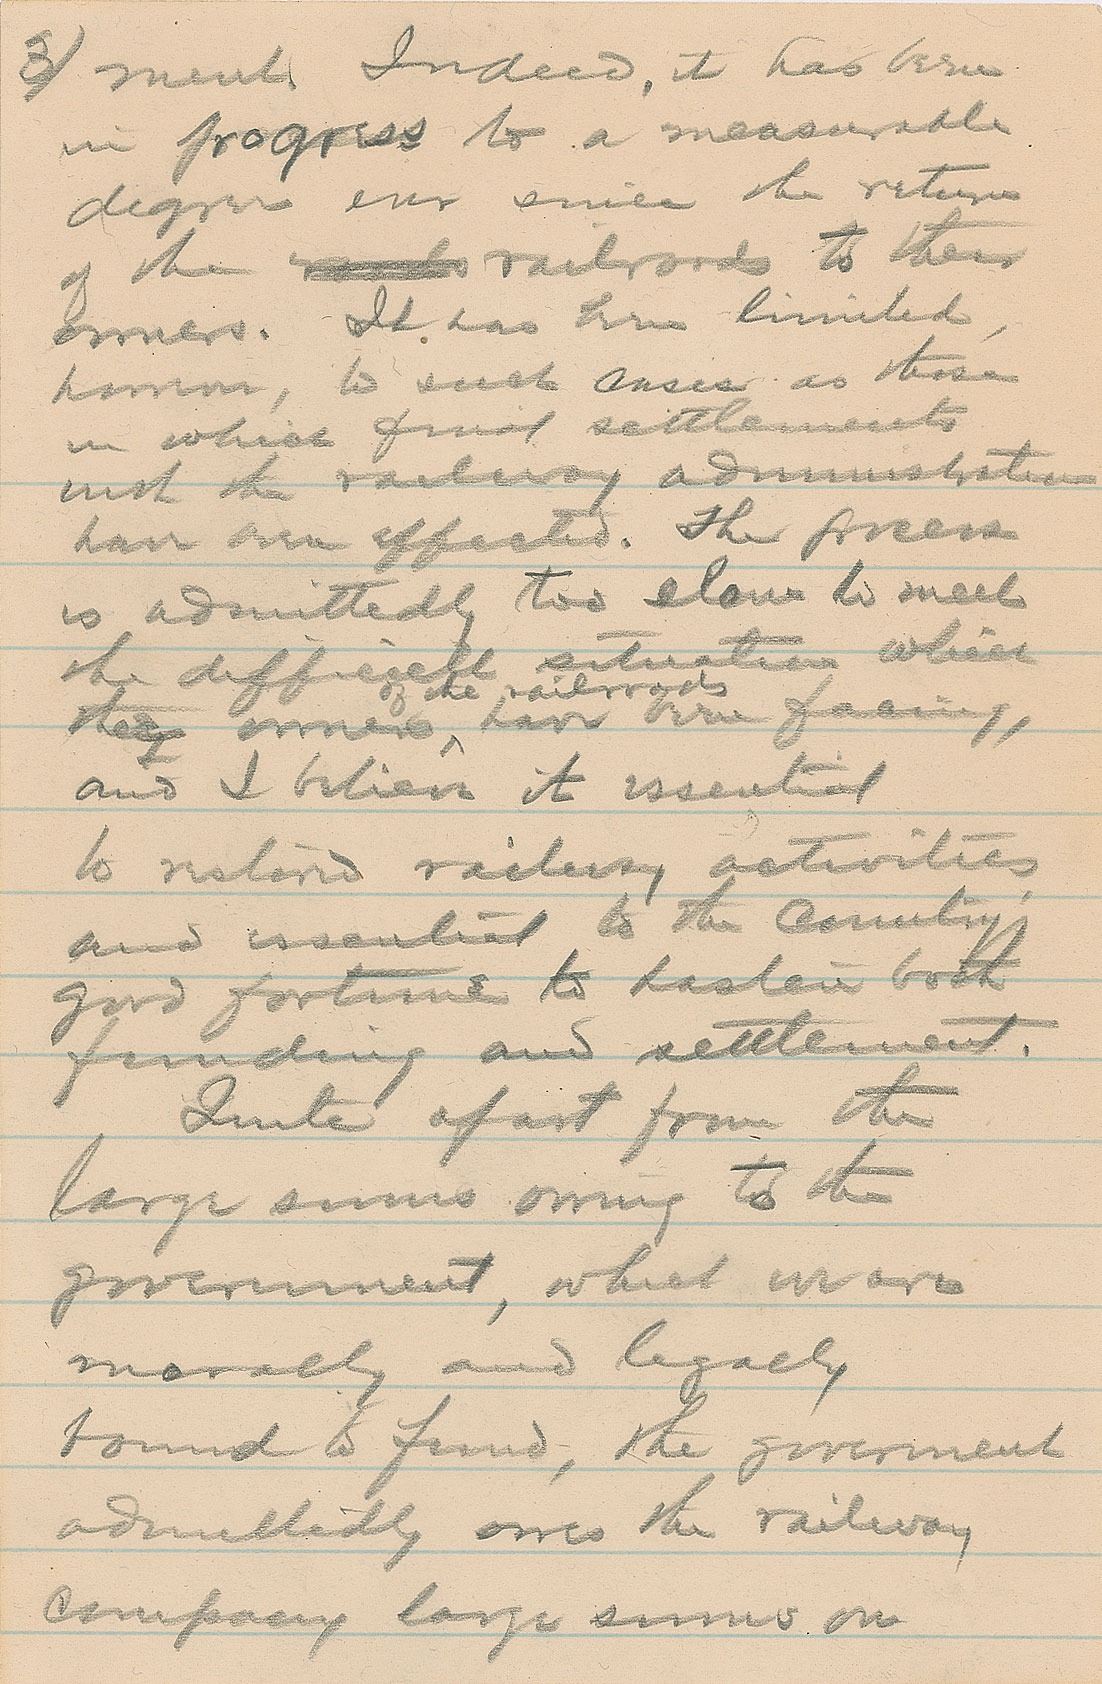 3/ ment. Indeed, it has been
in progress to a measurable
degree ever since the return
of the railroads to their
owners. It has been limited,
however, to such cases as those
in which final settlements
with the railway administration
have been effected. The process
is admittedly too slow to meet
the difficult situation which
the owners, of the railroads have been facing,
and I believe it essential
to restored railway activities,
and essential to the country's
good fortune to hasten both
funding and settlement.
Quite apart from the
large sums owing to the
government, which we are
morally and legally
bound to fund, the government
admittedly owes the railway
company large sums on